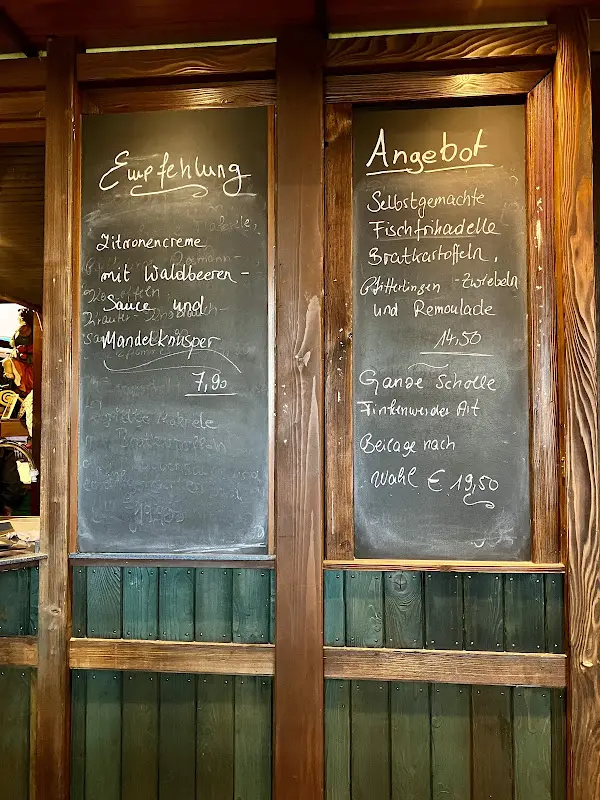 Empfehlung
Zitronencreme
mit Waldbeeren-
Sauce und
Mandelknusper
7,90
Angebot
Selbstgemachte
Fischfrikadelle
Bratkartoffeln,
Pfifferlingen-Zwiebeln
und Remoulade
14,50
Ganze Scholle
Finkenwerder Art
Beilage nach
Wahl € 19,50